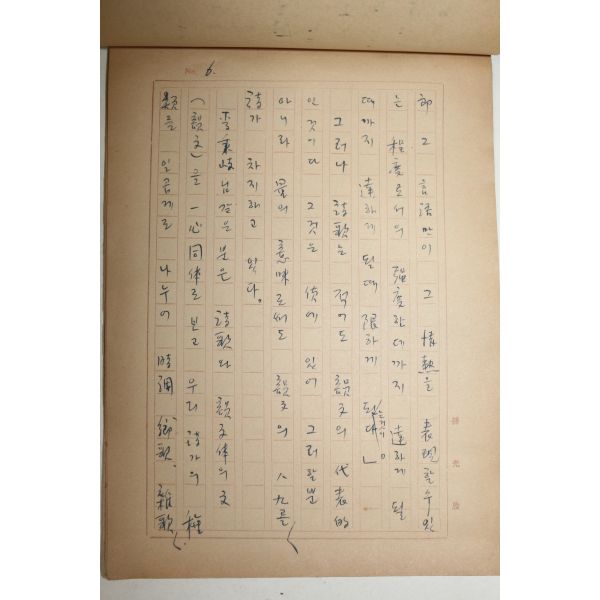 No. 6.
卽 그 言語만이 그 情熱을 表現할수있
는 程度로서의 强度한데까지 達하게 될
때까지 達하게 될때 限하게 된다」는것이다。
그러나 詩歌는 적어도 韻文의 代表的
인것이다 그것을 質에 있어 그러할뿐
아니라 量의 意味로써도 韻文의 八九를
詩가 차지하고 있다。
李秉岐님같은 분은 詩歌와 韻文体의 文
(韻文)을 一心同体로 보고 우리 詩가의 種
類를 일곱게로 나누어 時調 鄕歌、雜歌、